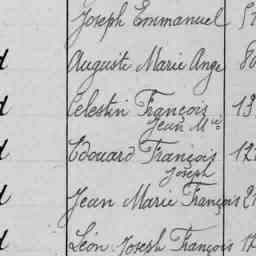 Joseph Emmanuel
d Auguste Marie Ange
d Celestin François 13
Jean M.ie
d Edouard François 12
Joseph
d Jean Marie François 2
d Léon Joseph François 17